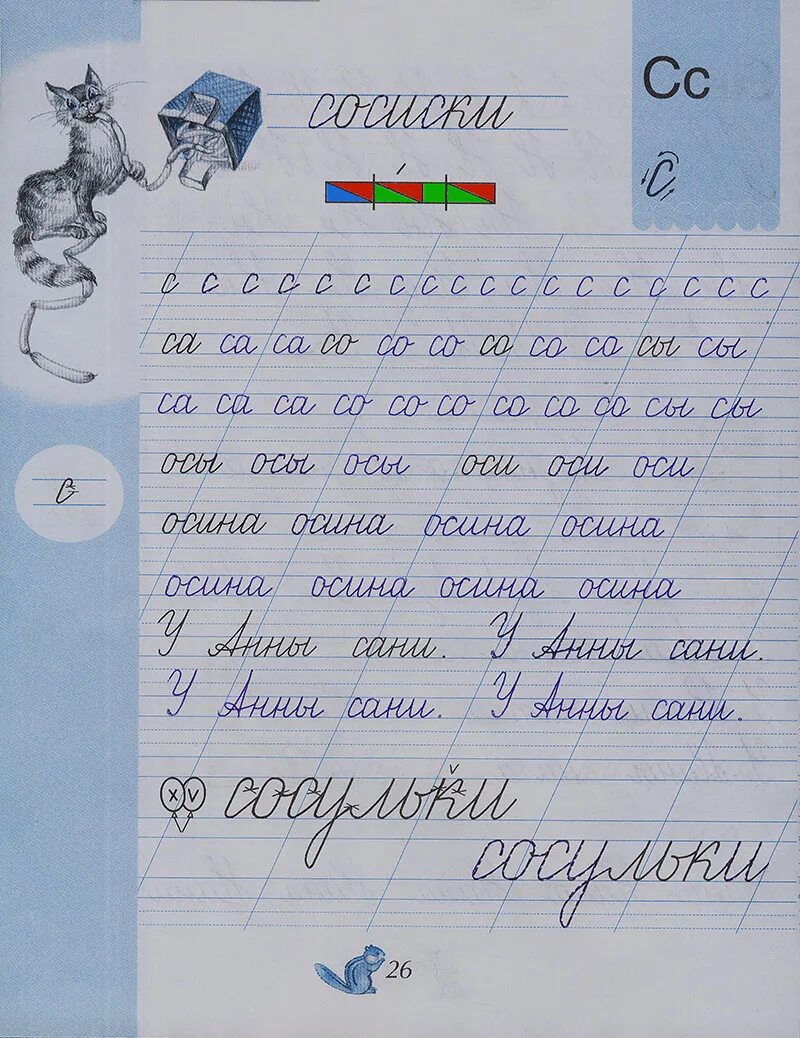 Сс
сосиски
С
с с с с с с с с с с с с с с с с с с
са са са со со со со со со сы сы
са са са со со со со со со сы сы
с
осы осы осы оси оси оси
осина осина осина осина
осина осина осина осина
У Анны сани. У Анны сани.
У Анны сани. У Анны сани.
x v сосульки
сосульки
26